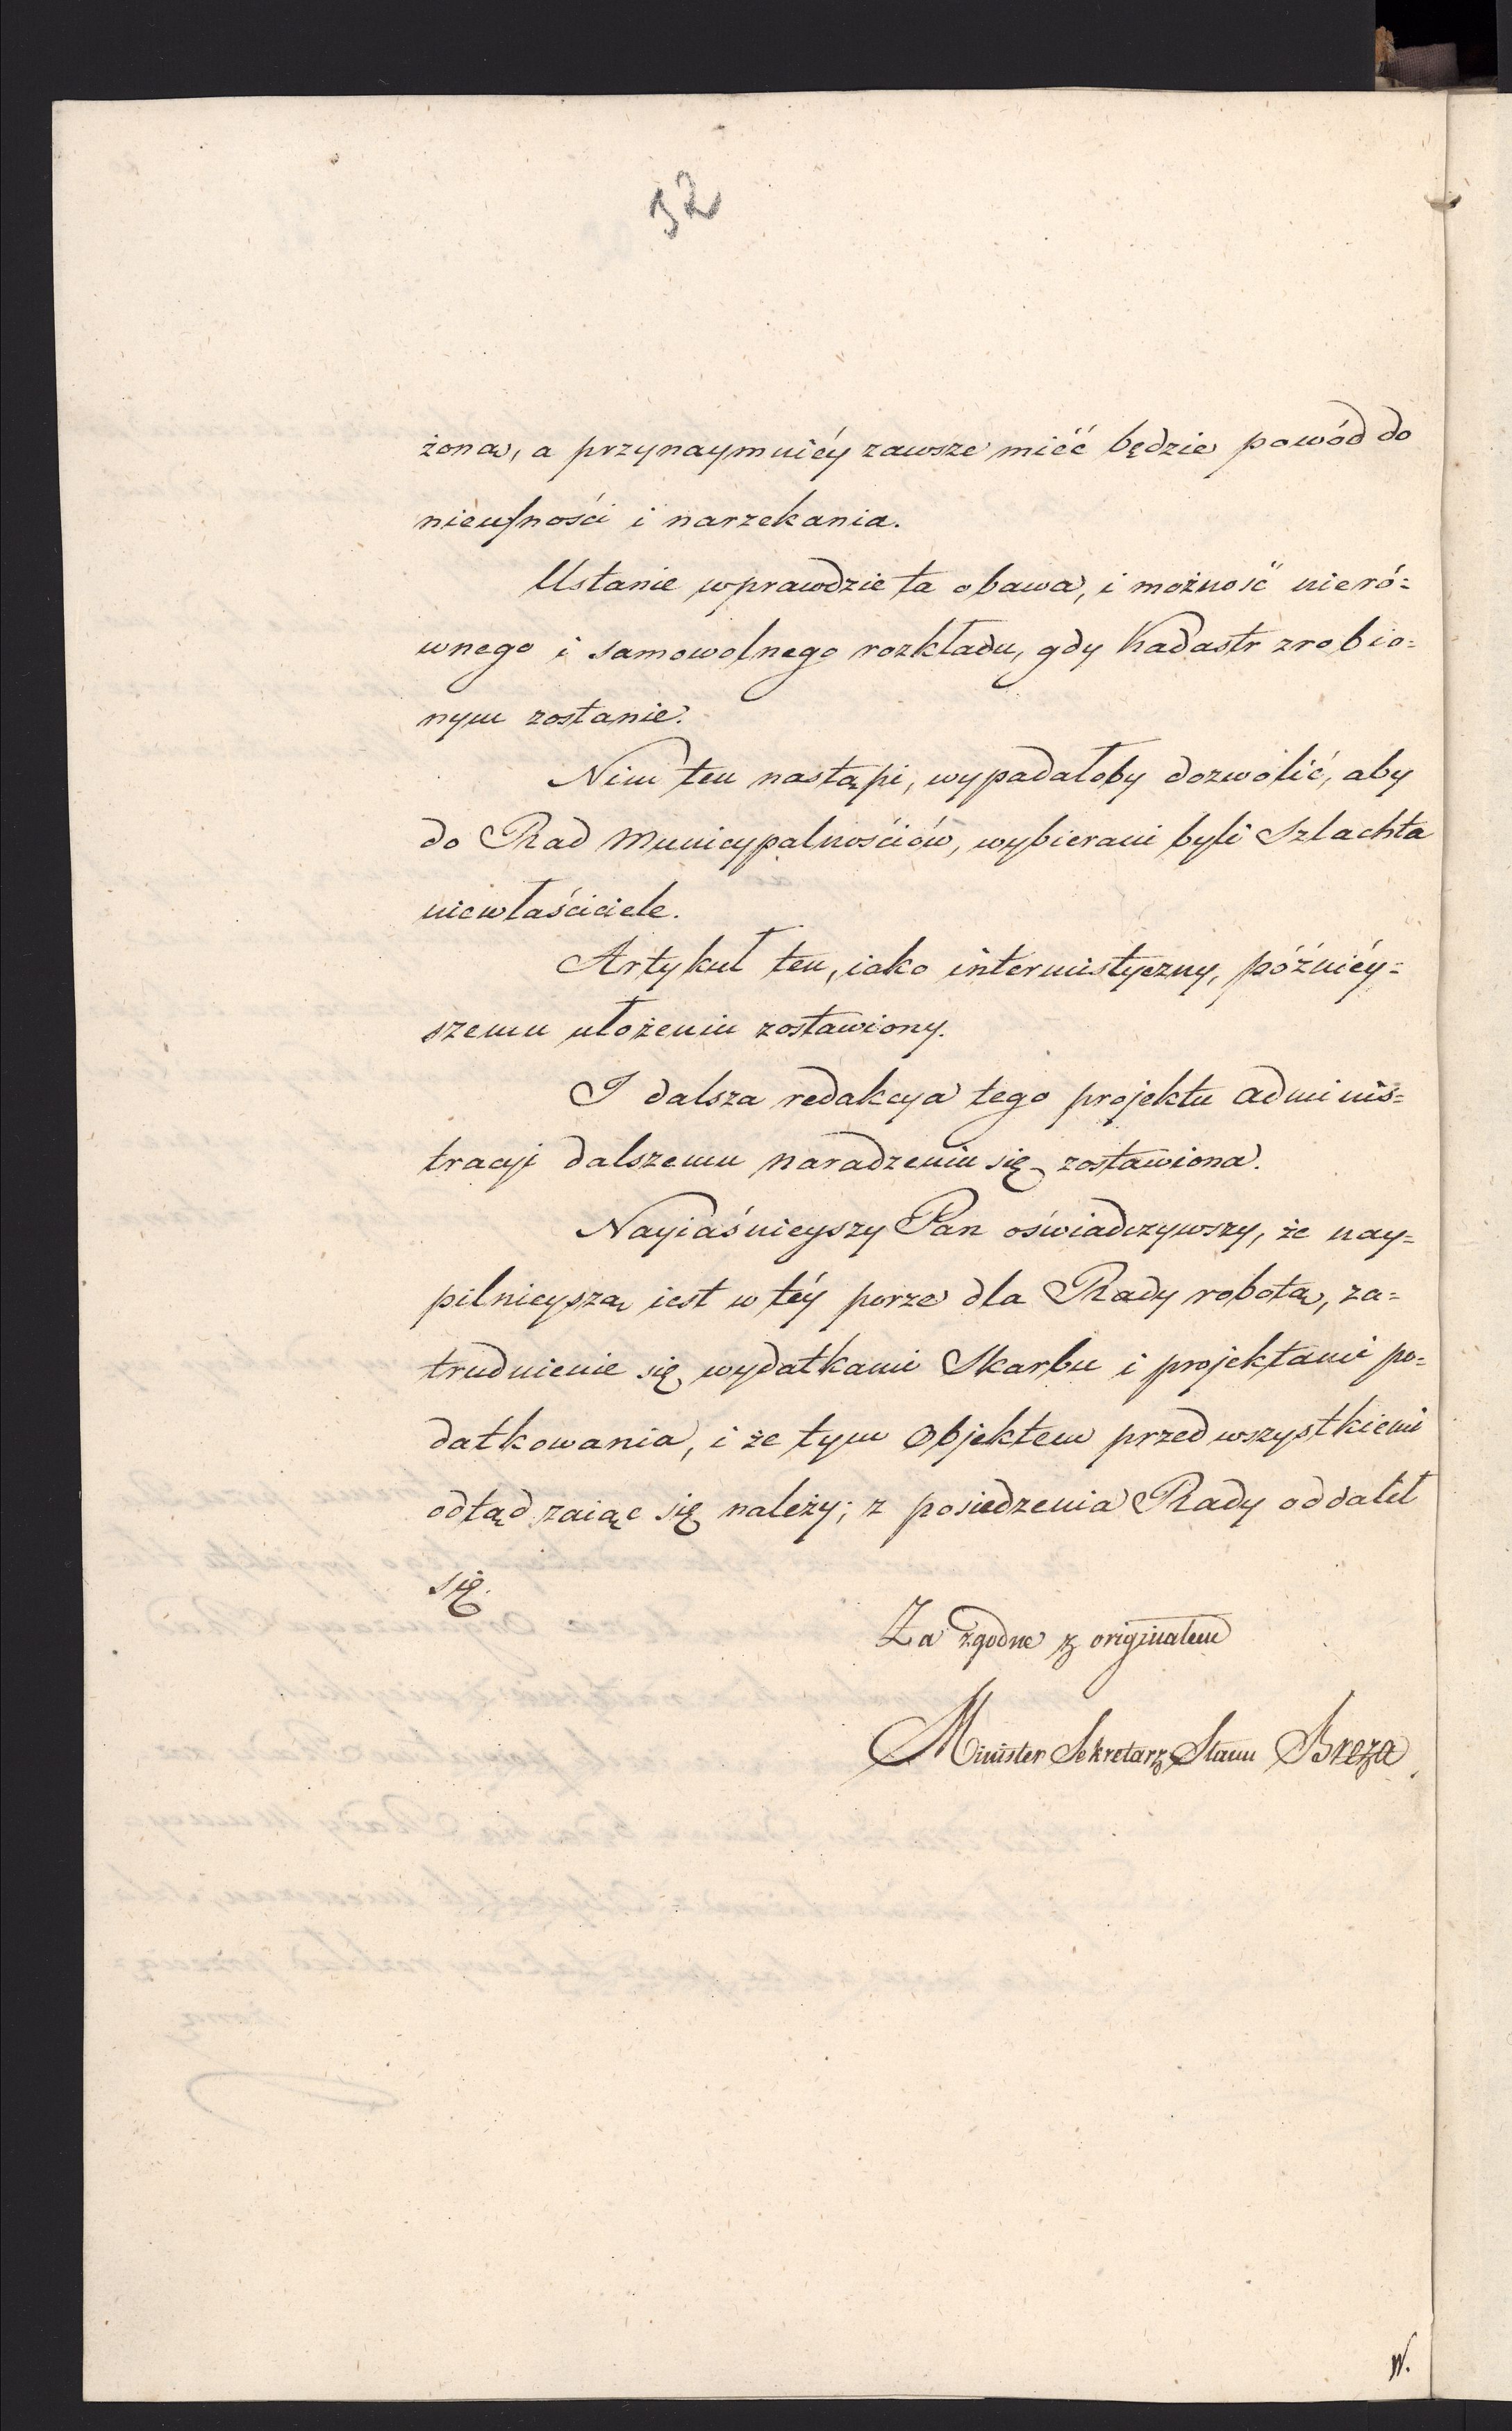 32
żoną, a przynaymniéy zawsze mieć będzie powód do
nieufności i narzekania.
Ustanie wprawdzie ta obawa, i możność nieró=
wnego i samowolnego rozkładu, gdy Kadastr zrobio=
nym zostanie.
Nim ten nastąpi, wypadałoby dozwolić, aby
do Rad Municypalnościów, wybierani byli Szlachta
niewłaściciele.
Artykuł ten, iako intermistyczny, późniéy=
szemu ułożeniu zostawiony.
I dalsza redakcya tego projektu adminis=
tracyi dalszemu naradzeniu się zostawiona.
Nayiaśnieyszy Pan oświadczywszy, że nay=
pilnieyszą iest w téy porze dla Rady robotą, za=
trudnienie się wydatkami Skarbu i projektami po=
datkowania, i że tym Objektem przed wszystkiemi
odtąd zaiąć się należy; z posiedzenia Rady oddalił
się.
Za zgodne z originałem
Minister Sekretarz Stanu Breza
W.